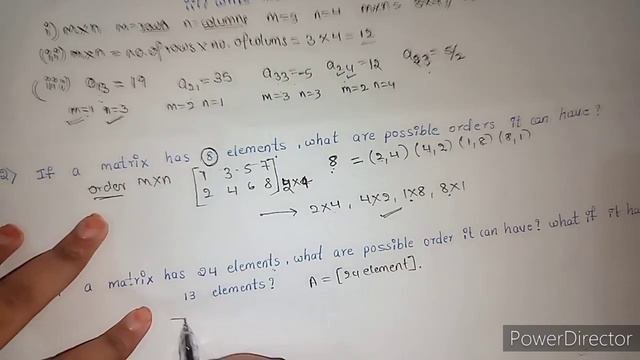 i) m×n m=rows n=columns m=3 n=4
m×n = no.of rows × no.of colums = 3×4 = 12
a13 = 19 a21 = 35 a33 = -5 a24 = 12 a23 = 5/2
m=1 n=3 m=2 n=1 m=3 n=3 m=2 n=4
2) If a matrix has 8 elements, what are possible orders it can have?
order m×n [1 3 5 7 8 = (2,4) (4,2) (1,8) (8,1)
2 4 6 8] 2×4
→ 2×4, 4×2, 1×8, 8×1
a matrix has 24 elements, what are possible order it can have? what if it ha
13 elements? A = [24 element].
PowerDirector